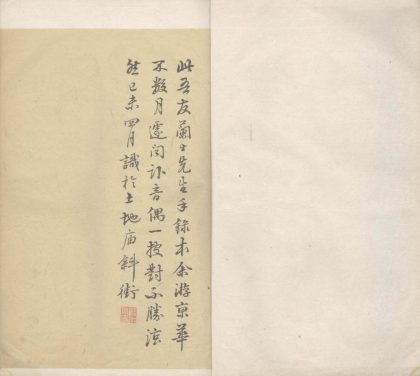 此吾友蘭士先生手錄本余游京華
不數月遽聞訃音偶一披對不勝泫
然己未四月識於土地庙斜街